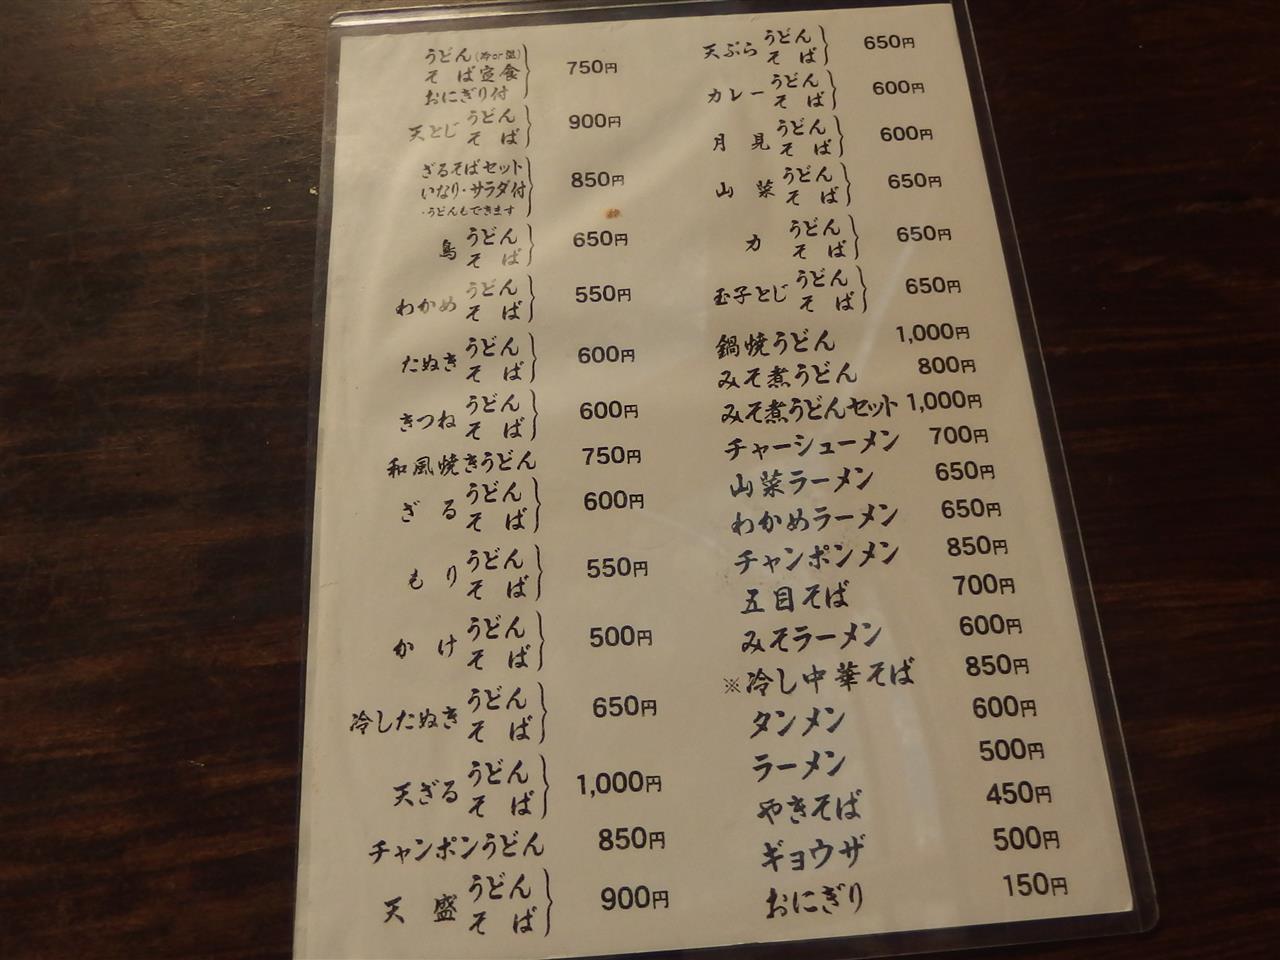 うどん(冷or温)
そば定食
おにぎり付
750円
天とじ うどん
そば
900円
ざるそばセット
いなり・サラダ付
・うどんもできます
850円
鳥 うどん
そば
650円
わかめ うどん
そば
550円
たぬき うどん
そば
600円
きつね うどん
そば
600円
和風焼きうどん 750円
ざる うどん
そば
600円
もり うどん
そば
550円
かけ うどん
そば
500円
冷したぬき うどん
そば
650円
天ざる うどん
そば
1,000円
チャンポンうどん 850円
天盛 うどん
そば
900円
天ぷら うどん
そば
650円
カレー うどん
そば
600円
月見 うどん
そば
600円
山菜 うどん
そば
650円
力 うどん
そば
650円
玉子とじ うどん
そば
650円
鍋焼うどん 1,000円
みそ煮うどん 800円
みそ煮うどんセット 1,000円
チャーシューメン 700円
山菜ラーメン 650円
わかめラーメン 650円
チャンポンメン 850円
五目そば 700円
みそラーメン 600円
※冷し中華そば 850円
タンメン 600円
ラーメン 500円
やきそば 450円
ギョウザ 500円
おにぎり 150円